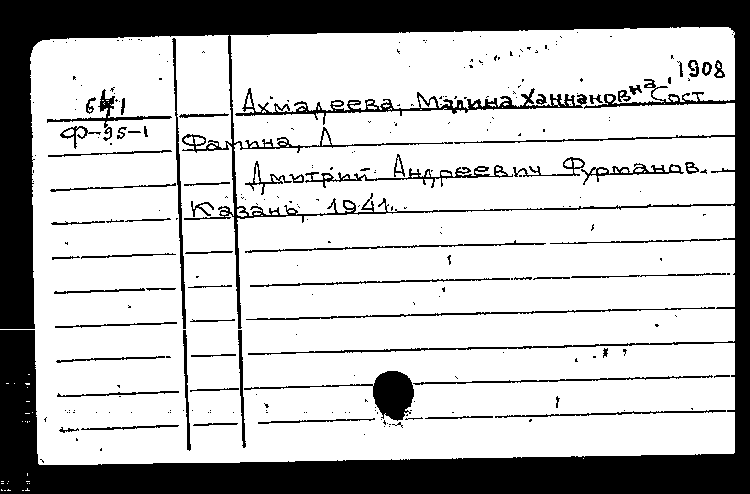 Ахмадеева, Мадина Ханнановна, 1908 Сост.
Ф-95-1
Фамина, Л
Дмитрий Андреевич Фурманов.
Казань, 1941.